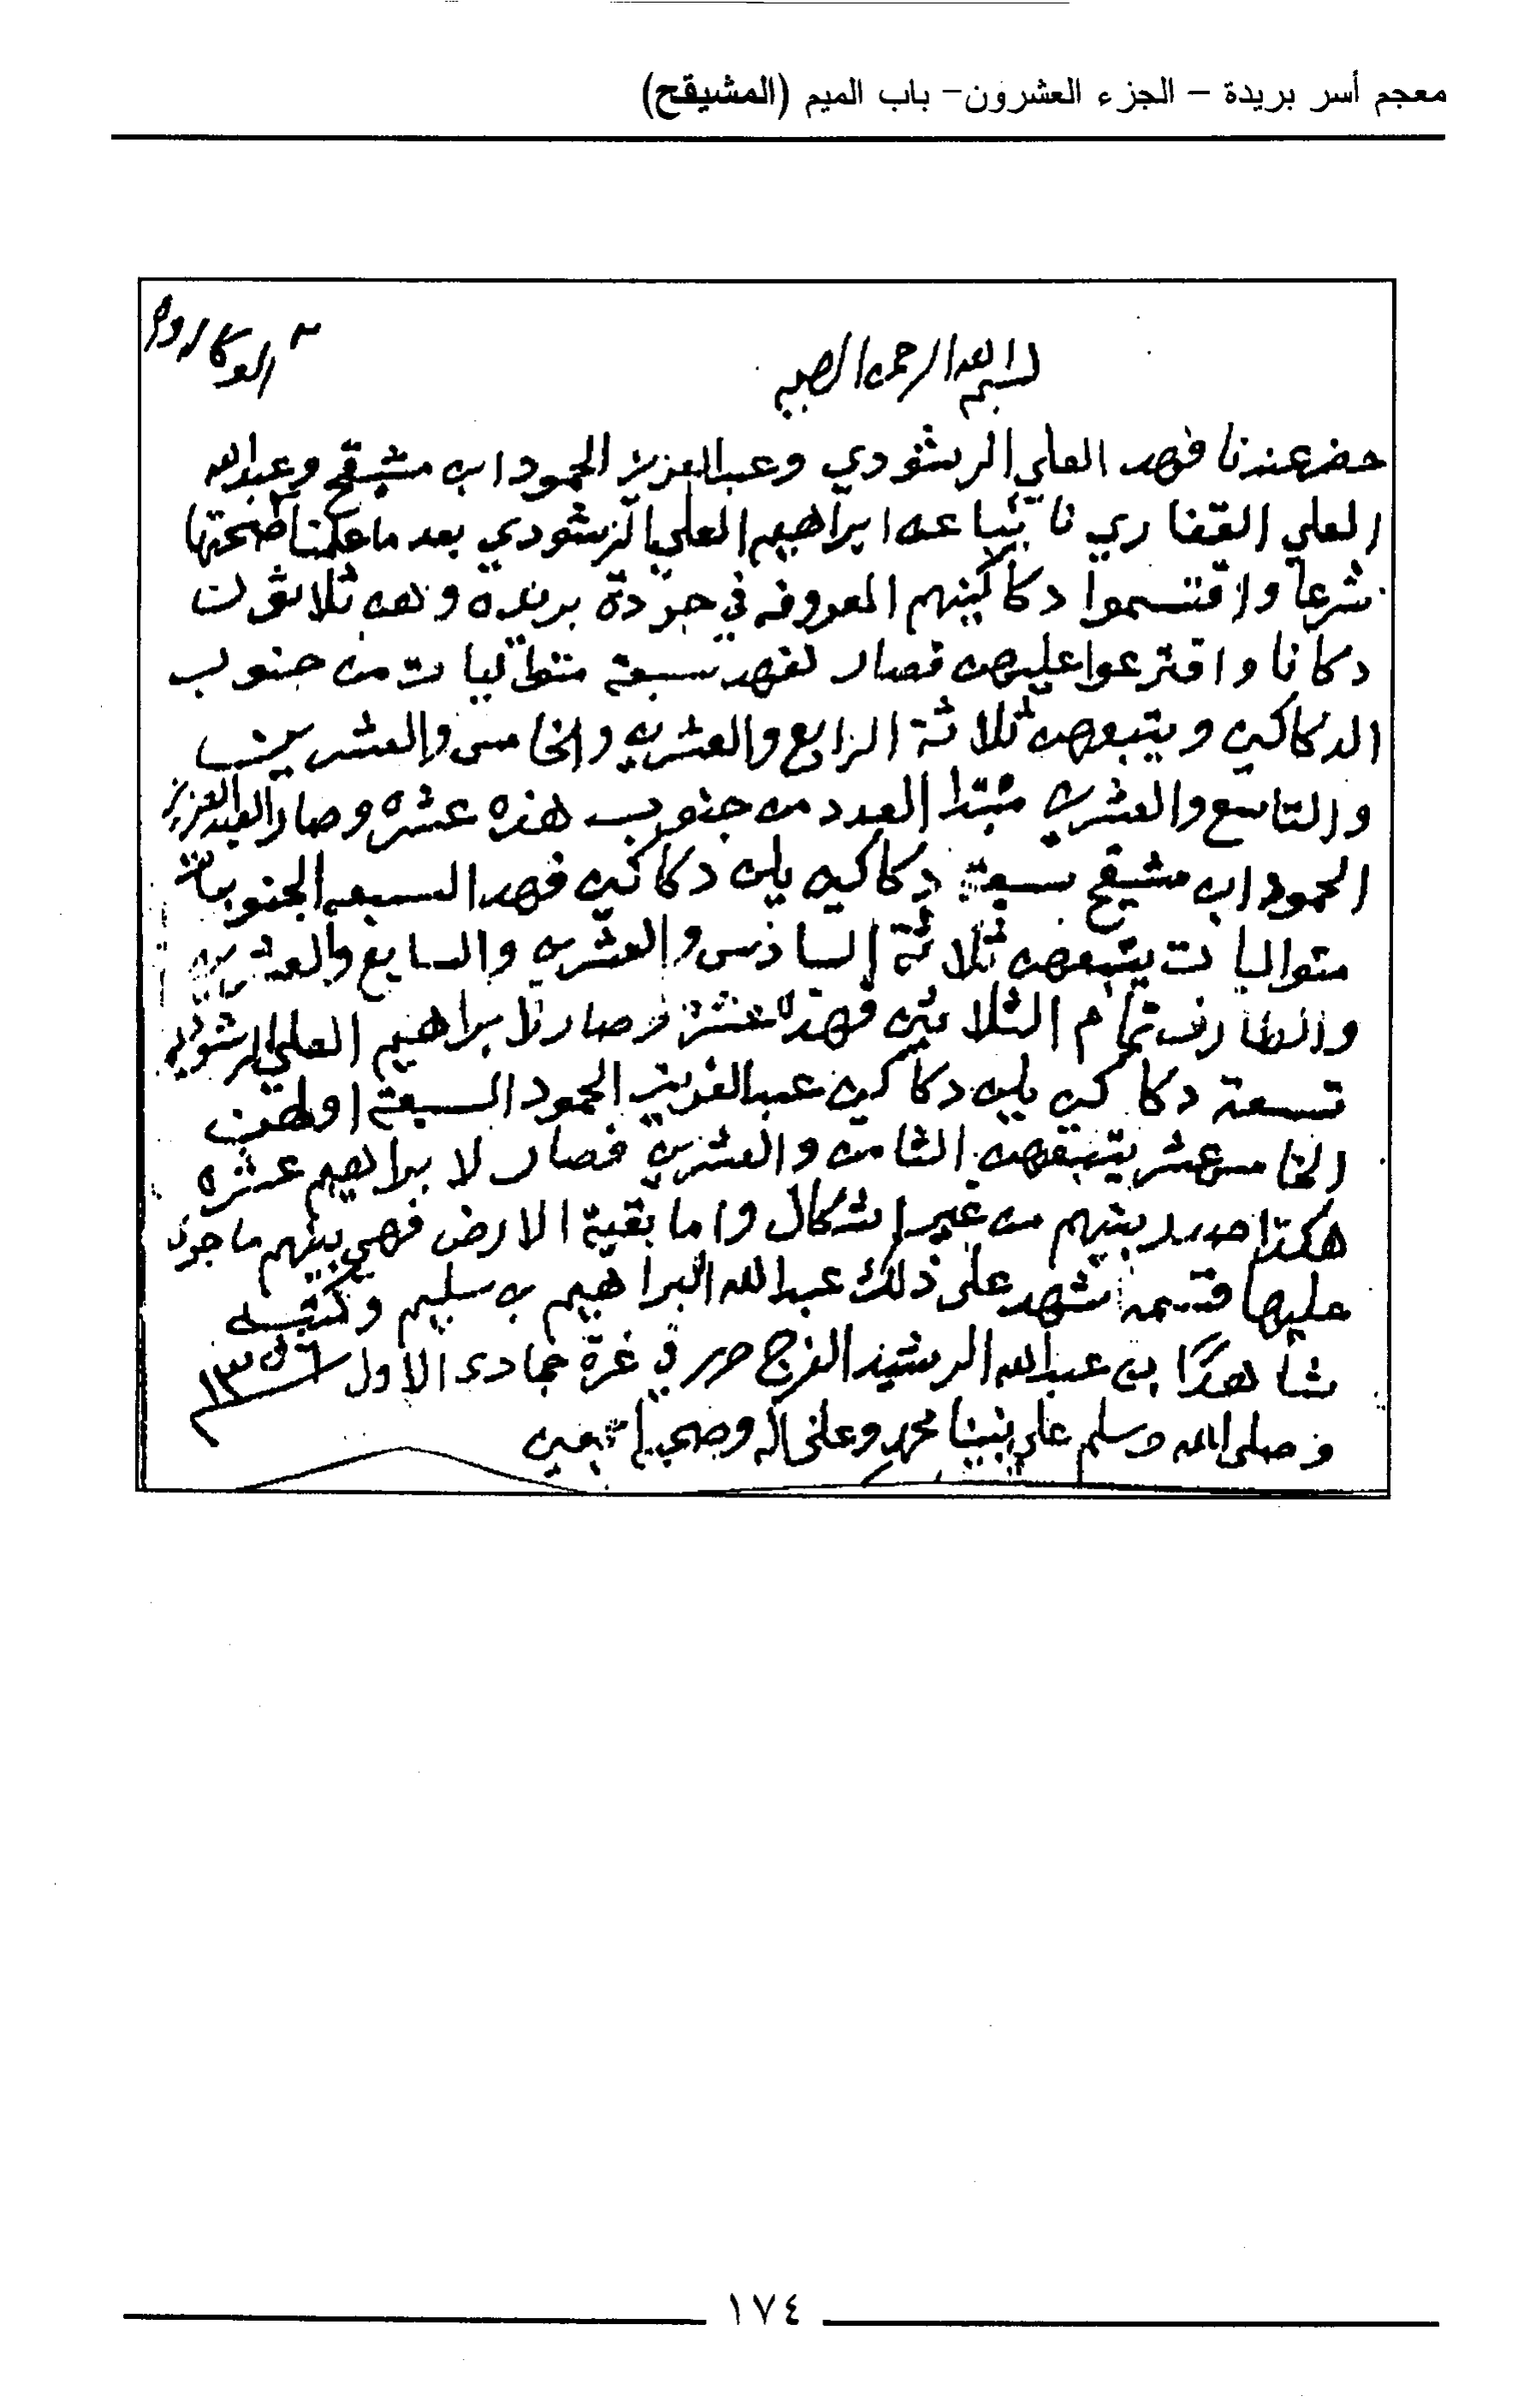 معجم أسر بريدة – الجزء العشرون– باب الميم (المشيقح)
بسم الله الرحمن الرحيم
حضر عندنا فهد العلي الرشودي وعبدالعزيز الحمود ابن مشيقح وعبدالله
العلي القفاري نائبا عن ابراهيم العلي الرشودي بعد ما علمنا صحتها
شرعا واقتسموا دكاكينهم المعروفه في جردة بريده وهن ثلاثون
دكانا واقترعوا عليهن فصار لفهد سبعة متواليات من جنوب
الدكاكين ويتبعهن ثلاثة الرابع والعشرين والخامس والعشرين
والتاسع والعشرين مبتدا العدد من جنوب هذه عشره وصار لعبدالعزيز
الحمود ابن مشيقح سبعة دكاكين يلن دكاكين فهد السبعه الجنوبيات
متواليات يتبعهن ثلاثة السادس والعشرين والسابع والعشرين
والطارف تمام الثلاثين فهذه عشرة وصار لابراهيم العلي الرشودي
تسعة دكاكين يلين دكاكين عبدالعزيز الحمود السبعة اولهن
الخامس عشر يتبعهن الثامن والعشرين فصار لابراهيم عشره
هكذا صدر بينهم من غير اشكال واما بقية الارض فهي بينهم ما جرى
عليها قسمه شهد على ذلك عبدالله البراهيم بن سليم وكتبه
شاهدًا به عبدالله الرشيد الفرج حرر في غرة جمادى الاول سنة ١٣٥٦
وصلى الله وسلم على نبينا محمد وعلى اله وصحبه اجمعين
١٧٤